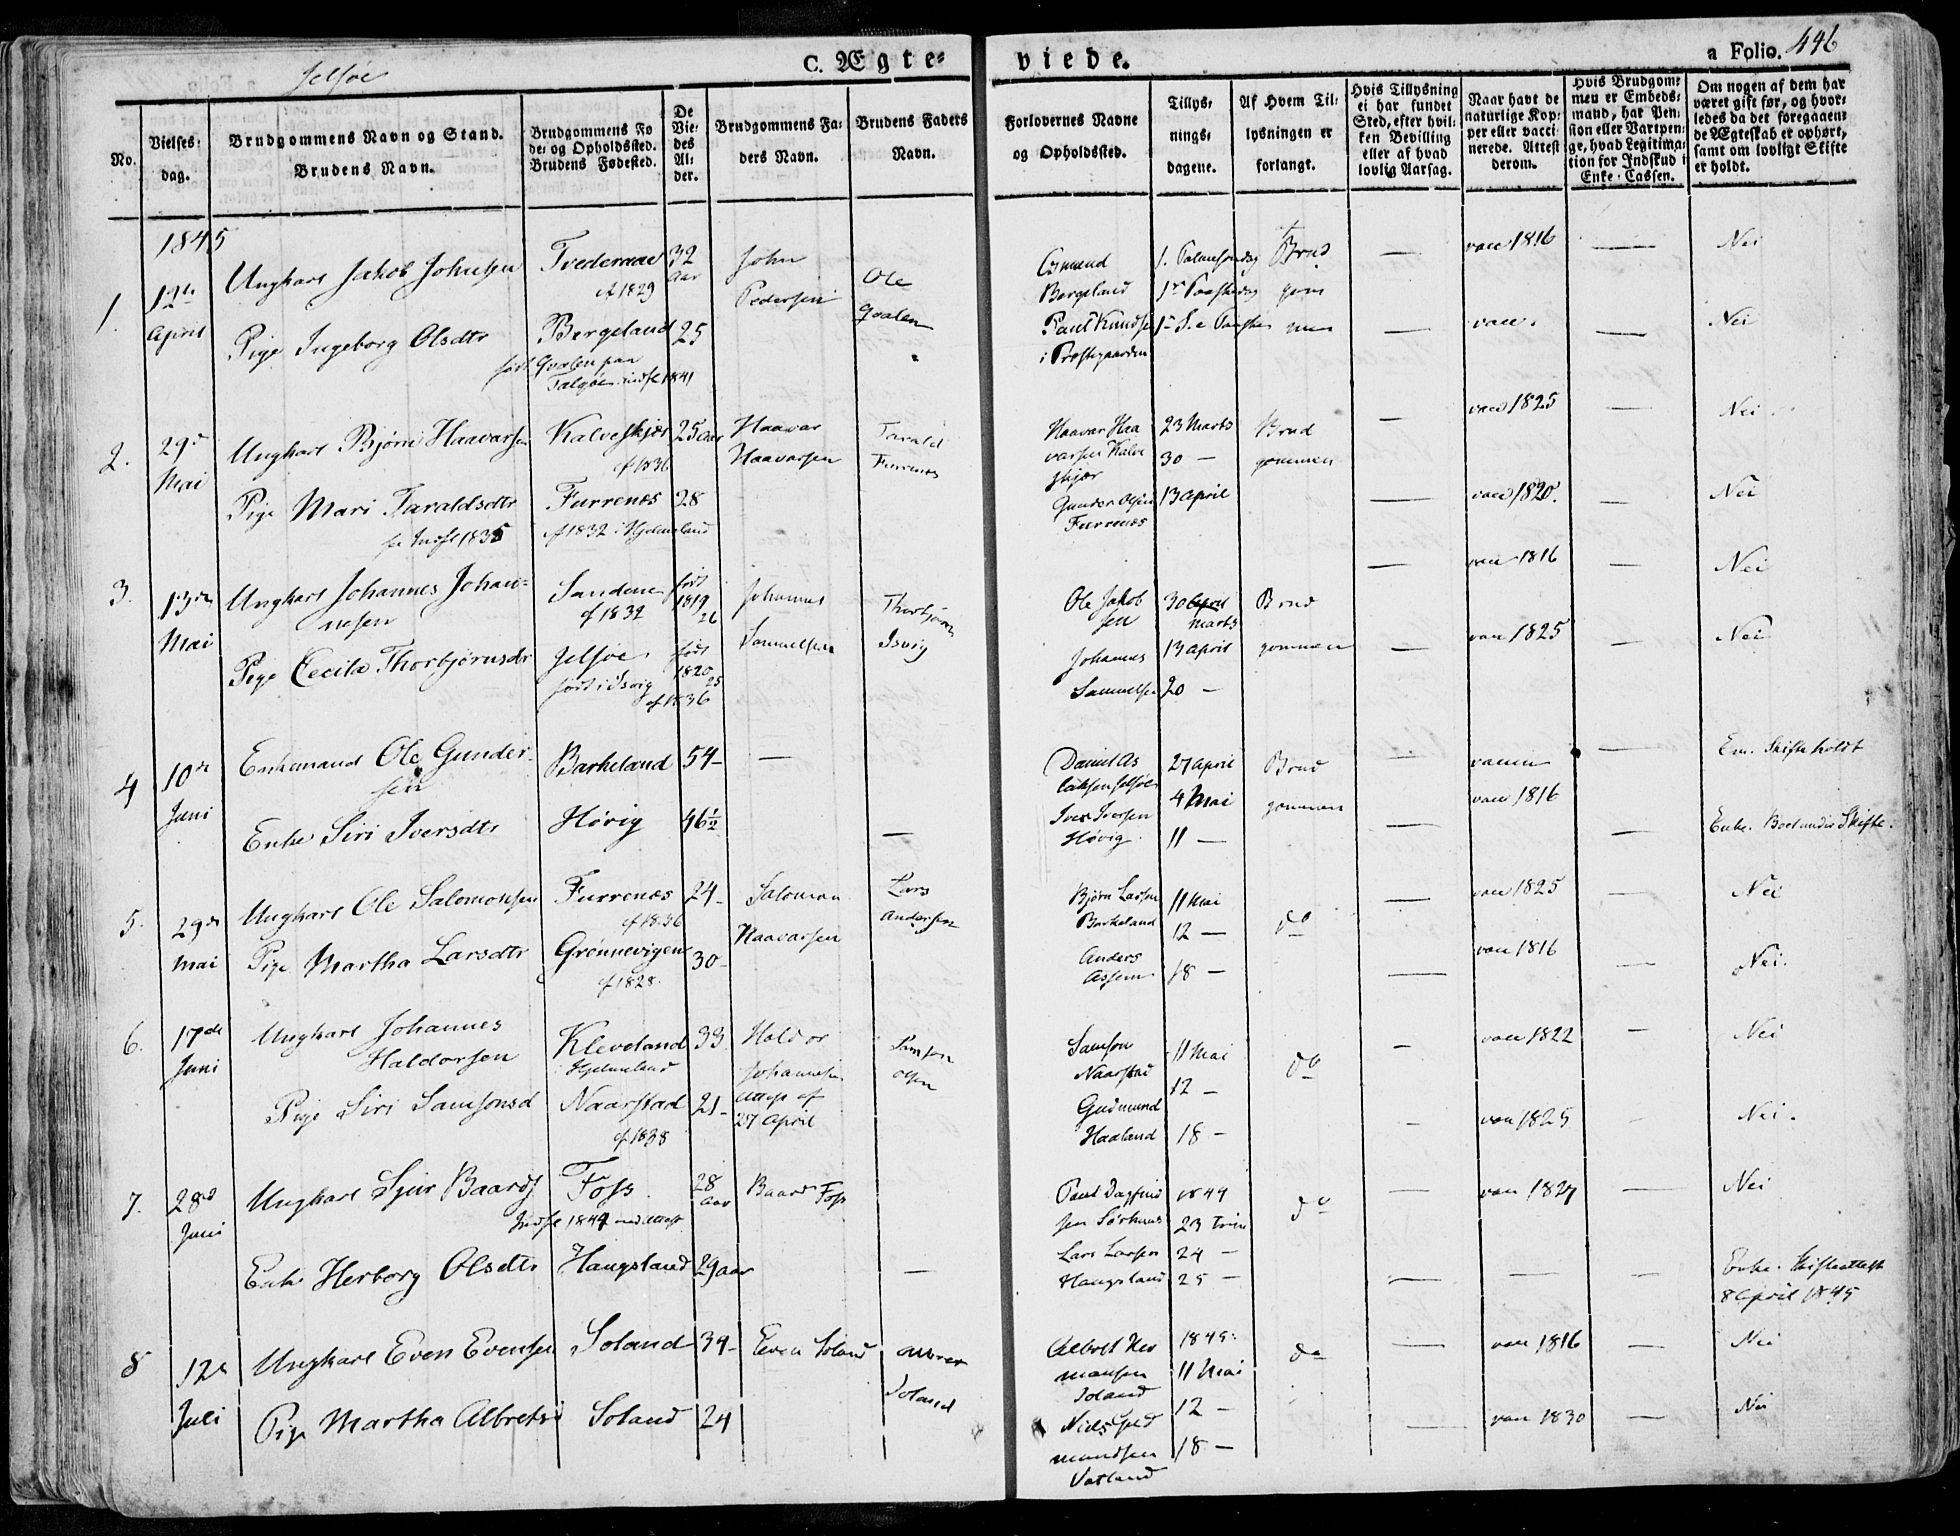 Jelsøe
C. Ægteviede.
a Folio. 446
No.
Vielses-dag.
Brudgommens Navn og Stand. Brudens Navn.
Brudgommens Føde- og Opholdssted. Brudens Fødested.
De Viedes Alder.
Brudgommens Faders Navn.
Brudens Faders Navn.
Forlovernes Navne og Opholdssted.
Tillysningsdagene.
Af Hvem Tillysningen er forlangt.
Hvis Tillysning ei har fundet Sted, efter hvilken Bevilling eller af hvad lovlig Aarsag.
Naar havt de naturlige Kopper eller vaccinerede. Attest derom.
Hvis Brudgommen er Embedsmand, har Pension eller Vartpenge, hvad Legitimation for Indskud i Enke-Cassen.
Om nogen af dem har været gift før, og hvorledes da det foregaaende Ægteskab er ophørt, samt om lovligt Skifte er holdt.
1845
1. 12te April
Ungkarl Jakob Johnsen Tvederaae 32 Aar John Pedersen
cf 1829
Pige Ingeborg Olsdtr Bergeland 25 Ole Qvalen
født Qvalen paa Talgøe. indfl 1841
Bergeland 1. Palmesøndag Brudgommen — vacc 1816 — Nei
1ste Paaskedag
Paul Knudsen — vacc. — Nei
i Præstegaarden
2. 29de Mai
Ungkarl Bjørn Haavarsen Kalveskjær 25 Aar Haavar Haavarsen
cf 1836
Pige Mari Taraldsdtr Furrenæs 28 Tarald Furrenæs
indfl 1835 cf 1832 i Hjelmeland
Haavar Haavarsen Kalveskjær 23 Marts Brudgommen — vacc 1825 — Nei
30 —
Gunder Olsen Furrenæs 13 April — vacc 1820. — Nei
3. 13de Mai
Ungkarl Johannes Johannesen Sandene født 1819 26 Johannes Samuelsen
cf 1832
Pige Cecilia Thorbjørnsdr Jelsøe født 1820 25 Thorbjørn Isvig
født i Isvig cf 1836
Ole Jakobsen 30 April Marts Brudgommen — vacc 1816 Nei
Johannes Samuelsen 13 April — vacc 1825 — Nei
20 —
4 10de Juni
Enkemand Ole Gundersen Barkeland 54 —
Enke Siri Iversdtr Høvig 46½ —
Daniel Aslaksen Jelsøe 27 April Brudgommen — — Em. Skifte holdt
Iver Iversen Høvig. 4 Mai — vacc 1816 — Enke. Boet under Skifte.
11 —
5. 29de Mai
Ungkarl Ole Salomonsen Furrenæs 24 Salomon Haavarsen
cf 1836
Pige Martha Larsdtr Grønnevigen 30 Lars Andersen
cf 1828.
Bjørn Larsen Barkeland 11 Mai do — vacc 1825 — Nei
12 —
Anders Assem 18 — — vacc 1816 — Nei.
6. 17de Juni
Ungkarl Johannes Haldorsen Kleveland 33 Haldor Johannesen
i Hjelmeland Attest af 27 April
Pige Siri Samsonsd Naarstad 21 Samson Olsen
cf 1838
Samson Naarstad 11 Mai do — vacc 1822 — Nei
12 —
Gudmund Haaland 18 — — vacc 1825 — Nei.
7. 28de Juni
Ungkarl Sjur Baards. Foss 28 Aar Baard Foss
Indfl 1844 med Attest
Enke Herborg Olsdtr Haugsland 29 aar —
Paul Dagfindsen 1844 do — vacc 1827 — Nei
23 Trin
Lars Larsen Haugsland 24 — — — — Enke. Skifteattest 8 April 1845
25 —
8 12te Juli
Ungkarl Even Evensen Soland 34 Even Soland
Pige Martha Albretsd Soland 24 Soland
Albret Hermansen Soland 1845. do — vacc 1816 — Nei
11 Mai
12 —
Niels Gudmundsen Vatland 18 — — vacc 1830 — Nei